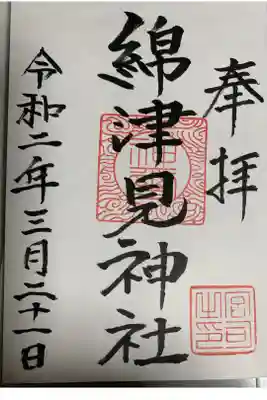 奉拝
綿津見神社
令和二年三月二十一日
宮司之印